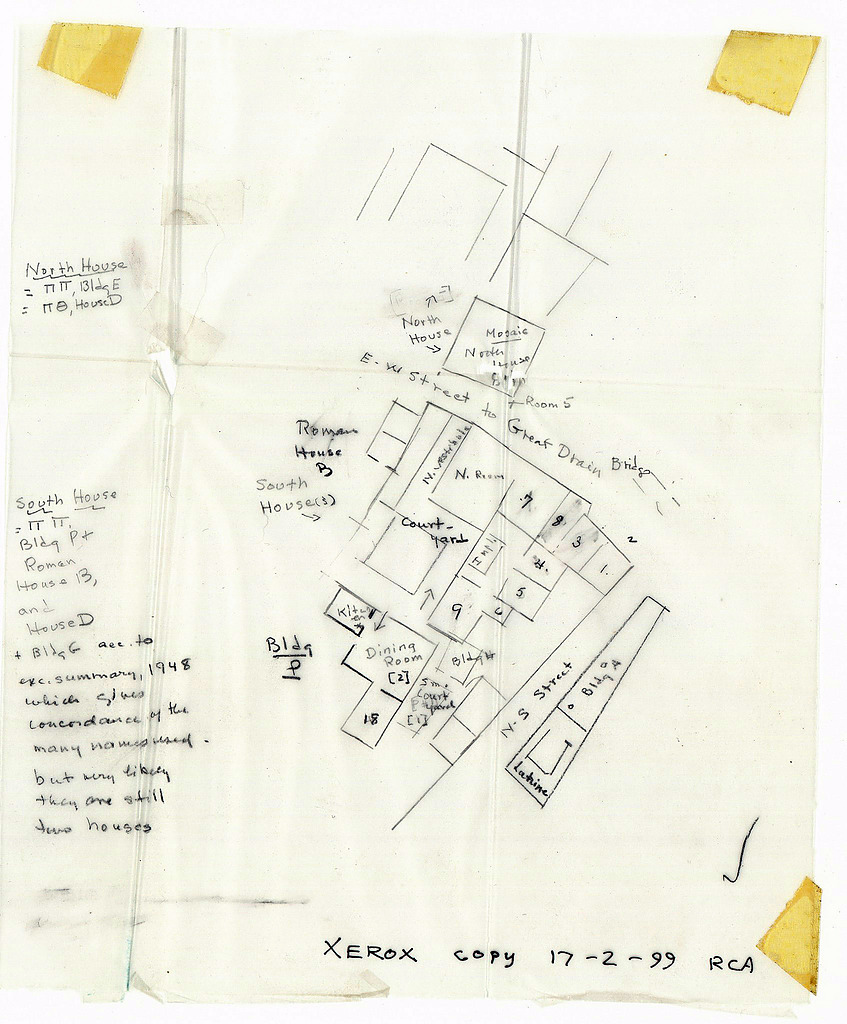 North House
= ΠΠ, Bldg E
= ΠΘ, House D
North
House
Mosaic
North
House
E-W Street to Great Drain
Room 5
Bridge
Roman
House
B
South
House(s)
N. Vestibule
N. Room
Court-
yard
7
8
3
1
2
4
5
6
9
Kitchen
Dining
Room
[2]
18
Bldg
P
Sm.
Court
[1]
N-S Street
Bldg A
Latrine
South House
= ΠΠ,
Bldg P +
Roman
House B,
and
House D
+ Bldg G acc. to
exc. summary, 1948
which gives
concordance of the
many names used.
but very likely
they are still
two houses
XEROX COPY 17-2-99 RCA